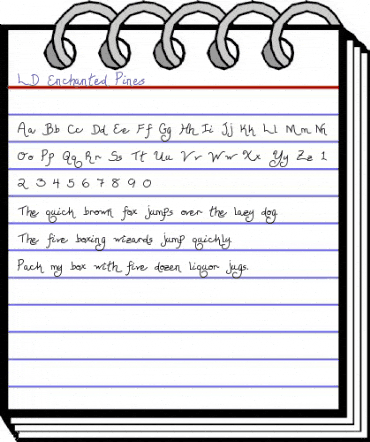 LD Enchanted Pines
Aa Bb Cc Dd Ee Ff Gg Hh Ii Jj Kk Ll Mm Nn
Oo Pp Qq Rr Ss Tt Uu Vv Ww Xx Yy Zz 1
2 3 4 5 6 7 8 9 0
The quick brown fox jumps over the lazy dog.
The five boxing wizards jump quickly.
Pack my box with five dozen liquor jugs.